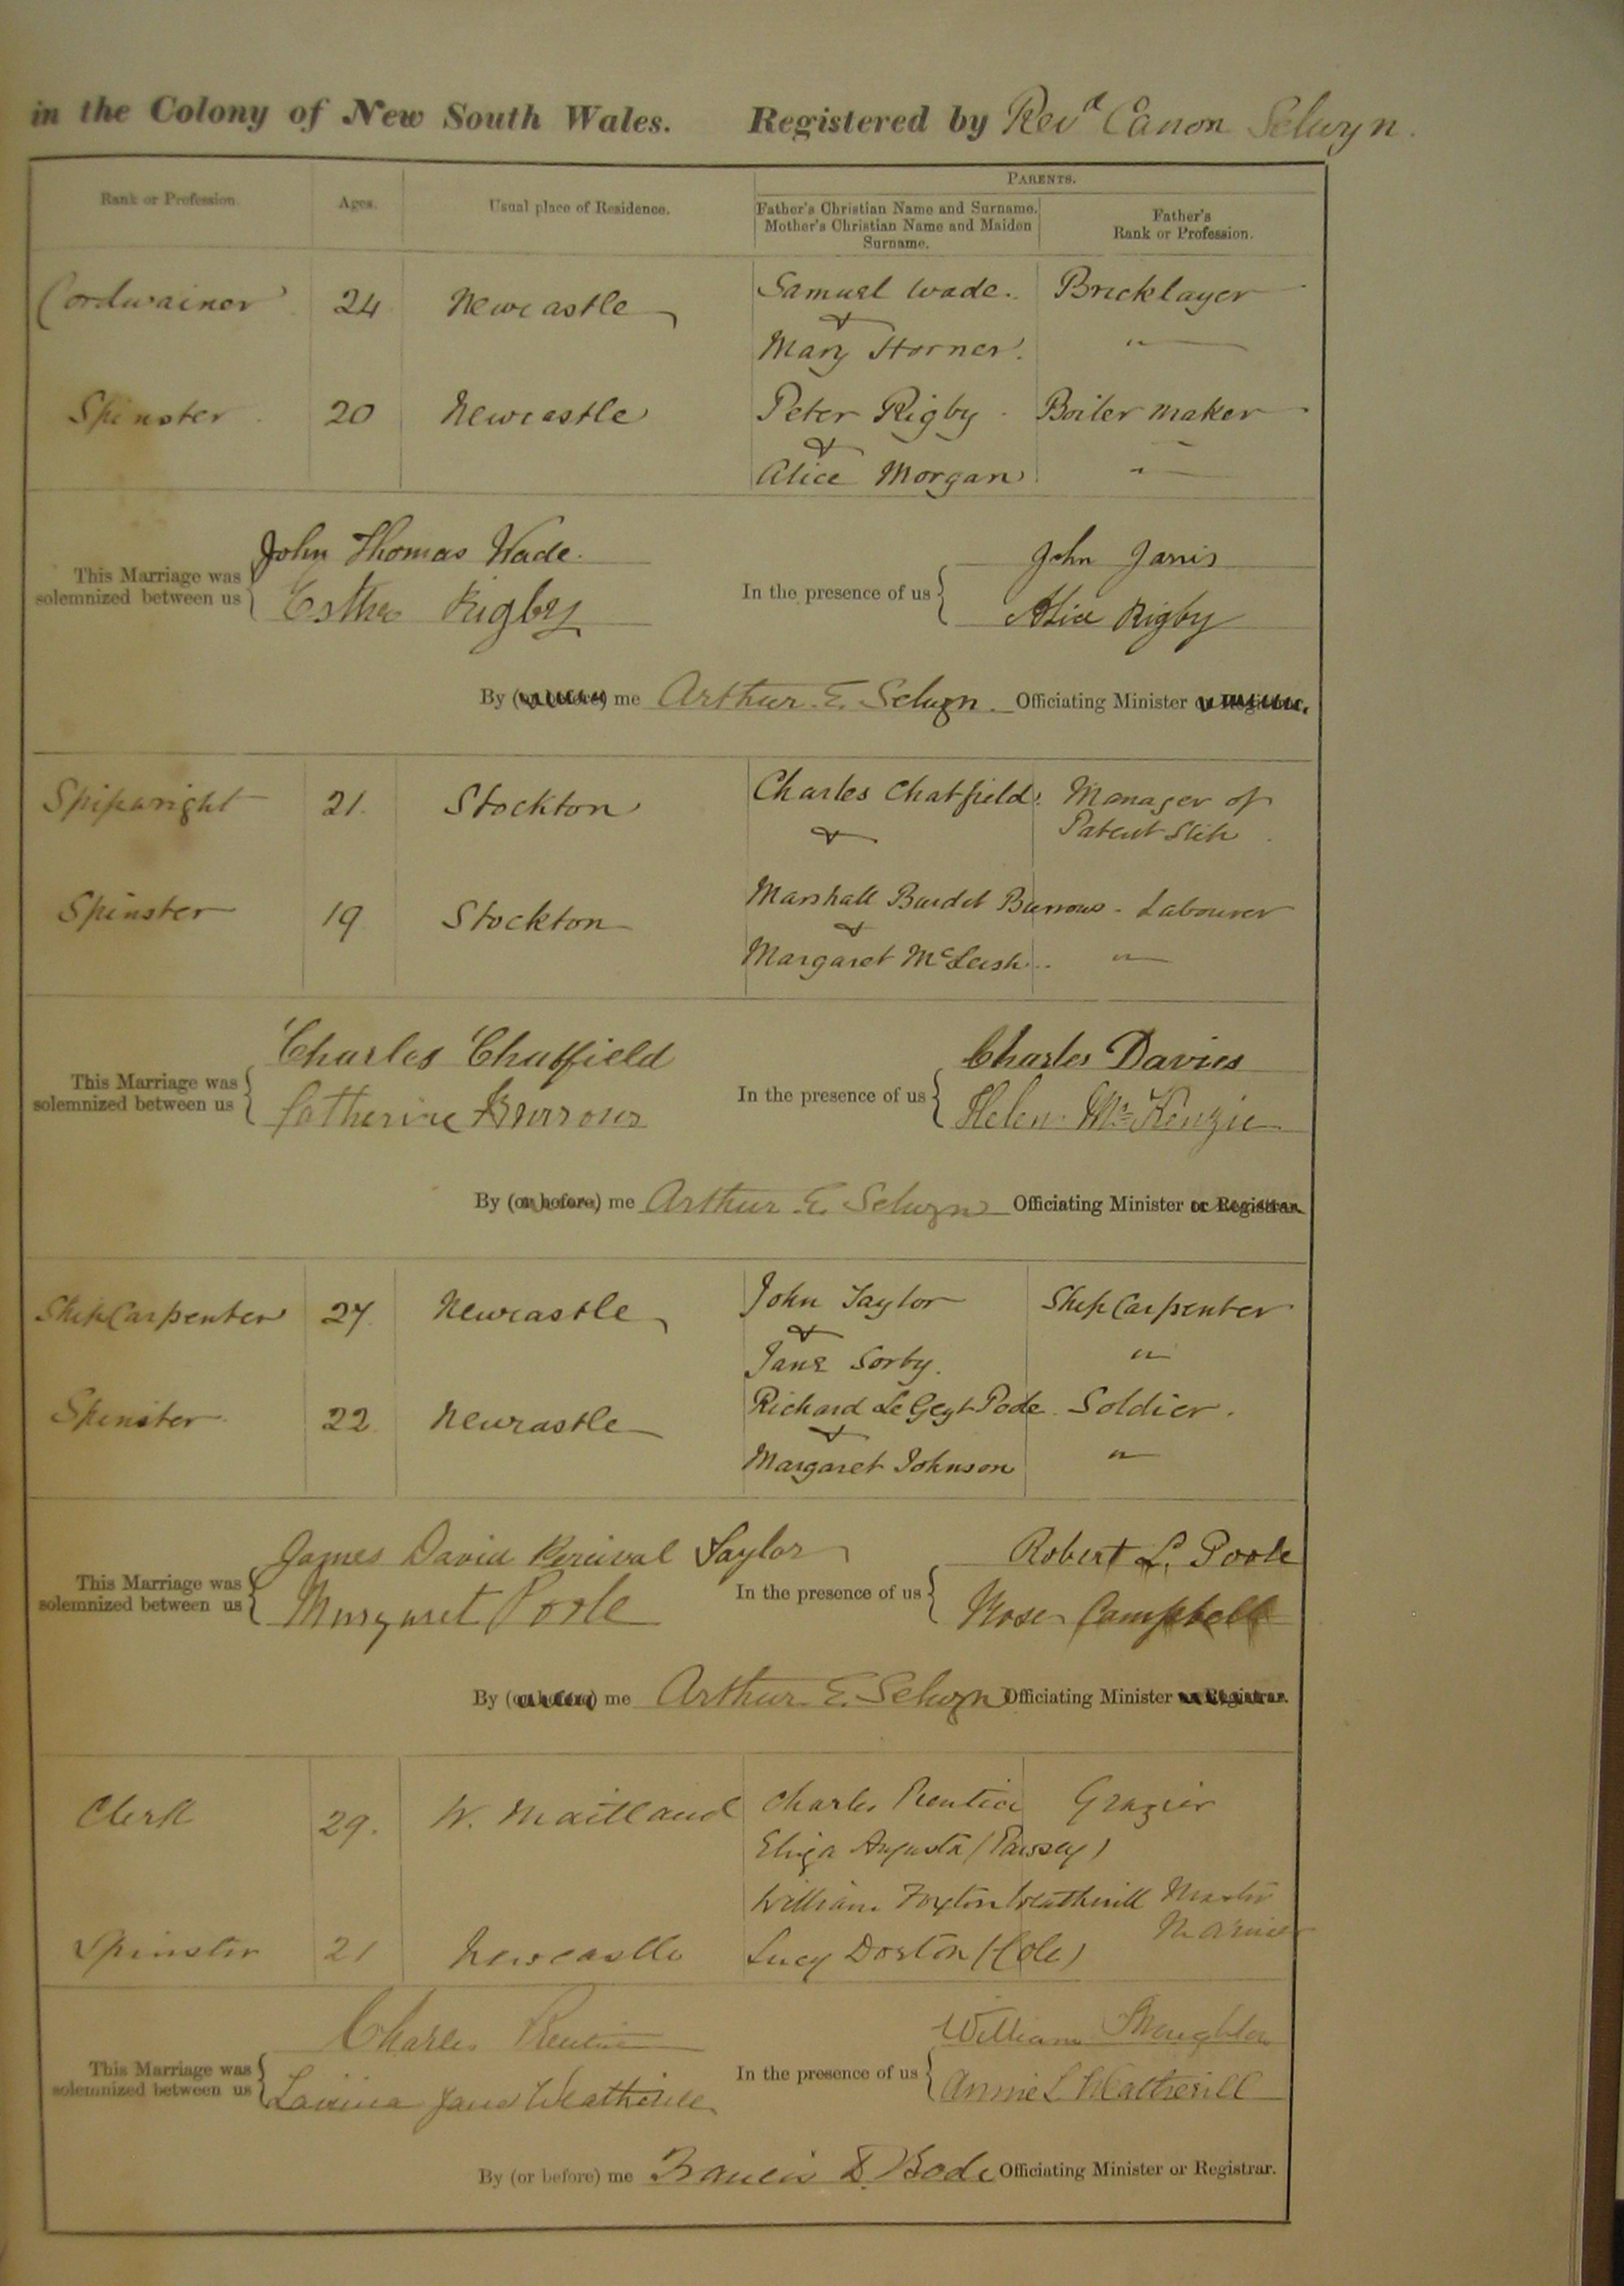 in the Colony of New South Wales. Registered by Revd Canon Selwyn.
PARENTS.
Rank or Profession. Ages. Usual place of Residence. Father's Christian Name and Surname. Mother's Christian Name and Maiden Surname. Father's Rank or Profession.
Cordwainer 24 Newcastle Samuel Wade. Bricklayer
&
Mary Horner. "
Spinster 20 Newcastle Peter Rigby Boiler maker
&
Alice Morgan "
John Thomas Wade.
This Marriage was solemnized between us
Esther Rigby
In the presence of us
John Jarvis
Alice Rigby
By (or before) me Arthur E. Selwyn. Officiating Minister or Registrar.
Shipwright 21. Stockton Charles Chatfield. Manager of
& Patent Slip
Spinster 19 Stockton Marshall Burdet Burrows - Labourer
&
Margaret McLeish.. "
Charles Chatfield
This Marriage was solemnized between us
Catherine Burrows
In the presence of us
Charles Davies
Helen McKenzie
By (or before) me Arthur E. Selwyn Officiating Minister or Registrar.
Ship Carpenter 27 Newcastle John Taylor Ship Carpenter
&
Jane Sorby. "
Spinster 22 Newcastle Richard Le Geyt Poole Soldier.
&
Margaret Johnson "
James David Percival Taylor
This Marriage was solemnized between us
Margaret Poole
In the presence of us
Robert L. Poole
Rose Campbell
By (or before) me Arthur E. Selwyn Officiating Minister or Registrar.
Clerk 29. W. Maitland Charles Prentice Grazier
Eliza Augusta
William Foxton Weatherill Master
Mariner
Spinster 21 Newcastle Lucy Dorton (Cole)
Charles Prentice
This Marriage was solemnized between us
Lavinia Jane Weatherill
In the presence of us
William
Annie L Weatherill
By (or before) me Francis D. Bode Officiating Minister or Registrar.